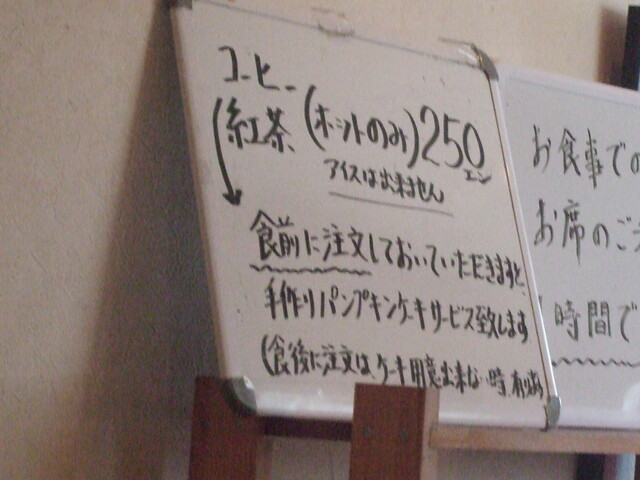 コーヒー
紅茶 (ホットのみ) 250エン
アイスは出来ません
食前に注文しておいていただきますと、
手作りパンプキンケーキサービス致します
(食後に注文はケーキ用意出来ない時、有ります
お食事での
お席のご
時間で